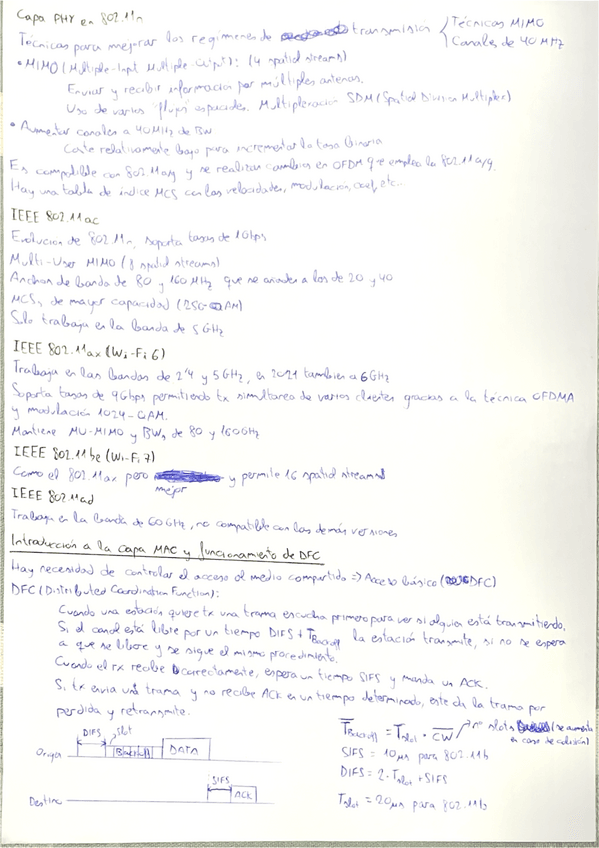 Capa PHY en 802.11n
Técnicas para mejorar los regímenes de transmisión { Técnicas MIMO
Canales de 40 MHz
• MIMO (Multiple-Input Multiple-Output): (4 spatial streams)
Enviar y recibir información por múltiples antenas.
Uso de varios flujos espaciales. Multiplexación SDM (Spatial Division Multiplex)
• Aumentar canales a 40MHz de BW
Coste relativamente bajo para incrementar la tasa binaria
Es compatible con 802.11a/g y se realizan cambios en OFDM que emplea la 802.11a/g.
Hay una tabla de índice MCS con las velocidades, modulación, coef, etc...
IEEE 802.11ac
Evolución de 802.11n, soporta tasas de 1Gbps
Multi-User MIMO (8 spatial streams)
Anchos de banda de 80 y 160 MHz que se añaden a los de 20 y 40
MCSs de mayor capacidad (256-QAM)
Solo trabaja en la banda de 5 GHz
IEEE 802.11ax (Wi-Fi 6)
Trabaja en las bandas de 2'4 y 5GHz, en 2021 también a 6GHz
Soporta tasas de 9Gbps permitiendo tx simultáneo de varios clientes gracias a la técnica OFDMA
y modulación 1024-QAM.
Mantiene MU-MIMO y BWs de 80 y 160GHz
IEEE 802.11be (Wi-Fi 7)
Como el 802.11ax pero mejor y permite 16 spatial streams
IEEE 802.11ad
Trabaja en la banda de 60GHz, no compatible con las demás versiones
Introducción a la capa MAC y funcionamiento de DFC
Hay necesidad de controlar el acceso al medio compartido => Acceso básico (DFC)
DFC (Distributed Coordination Function):
Cuando una estación quiere tx una trama escucha primero para ver si alguien está transmitiendo.
Si el canal está libre por un tiempo DIFS + TBackoff la estación transmite, si no se espera
a que se libere y se sigue el mismo procedimiento.
Cuando el rx recibe correctamente, espera un tiempo SIFS y manda un ACK.
Si tx envia una trama y no recibe ACK en un tiempo determinado, este da la trama por
perdida y retransmite.
TBackoff = Tslot · CW → nº slots (se aumenta
en caso de colisión)
SIFS = 10μs para 802.11b
DIFS = 2·Tslot + SIFS
Tslot = 20μs para 802.11b
DIFS slot
Origen Backoff DATA
SIFS
Destino ACK